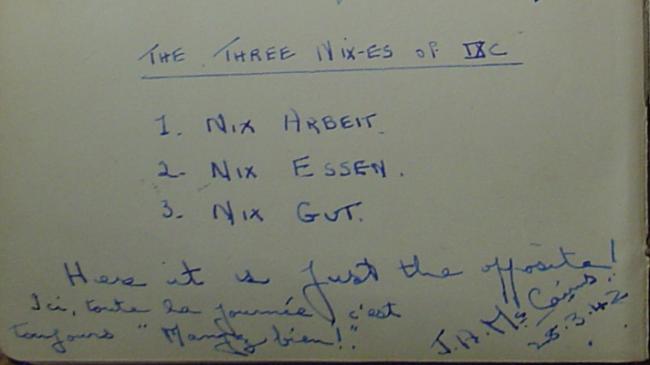 THE THREE NIX-ES OF IXC
1. NIX ARBEIT.
2- NIX ESSEN.
3- NIX GUT.
Here it is just the opposite!
Ici, toute la journée, c'est
toujours "Mangez bien!".
J.A. Mc
25.3.42